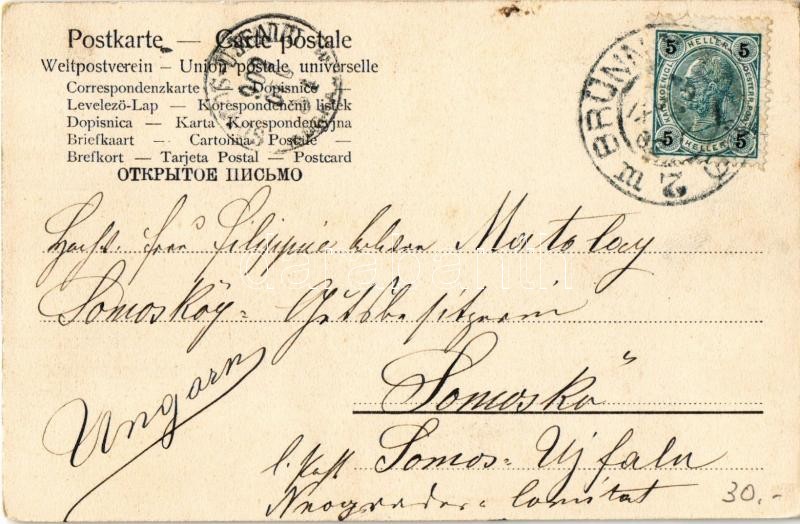 Postkarte — Carte postale
Weltpostverein — Union postale universelle
Correspondenzkarte — Dopisnice —
Levelező-Lap — Korespondenční listek
Dopisnica — Karta Korespondencyjna
Briefkaart — Cartolina Postale —
Brefkort — Tarjeta Postal — Postcard
ОТКРЫТОЕ ПИСЬМО
5 HELLER 5
5 HELLER 5
BRÜNN 2
Filippie Matolay
Somosköy= Gutsbesitzerin
Somoskő
Ungarn
l. Post Somos= Ujfalu
Neograder= Comitat
30.-